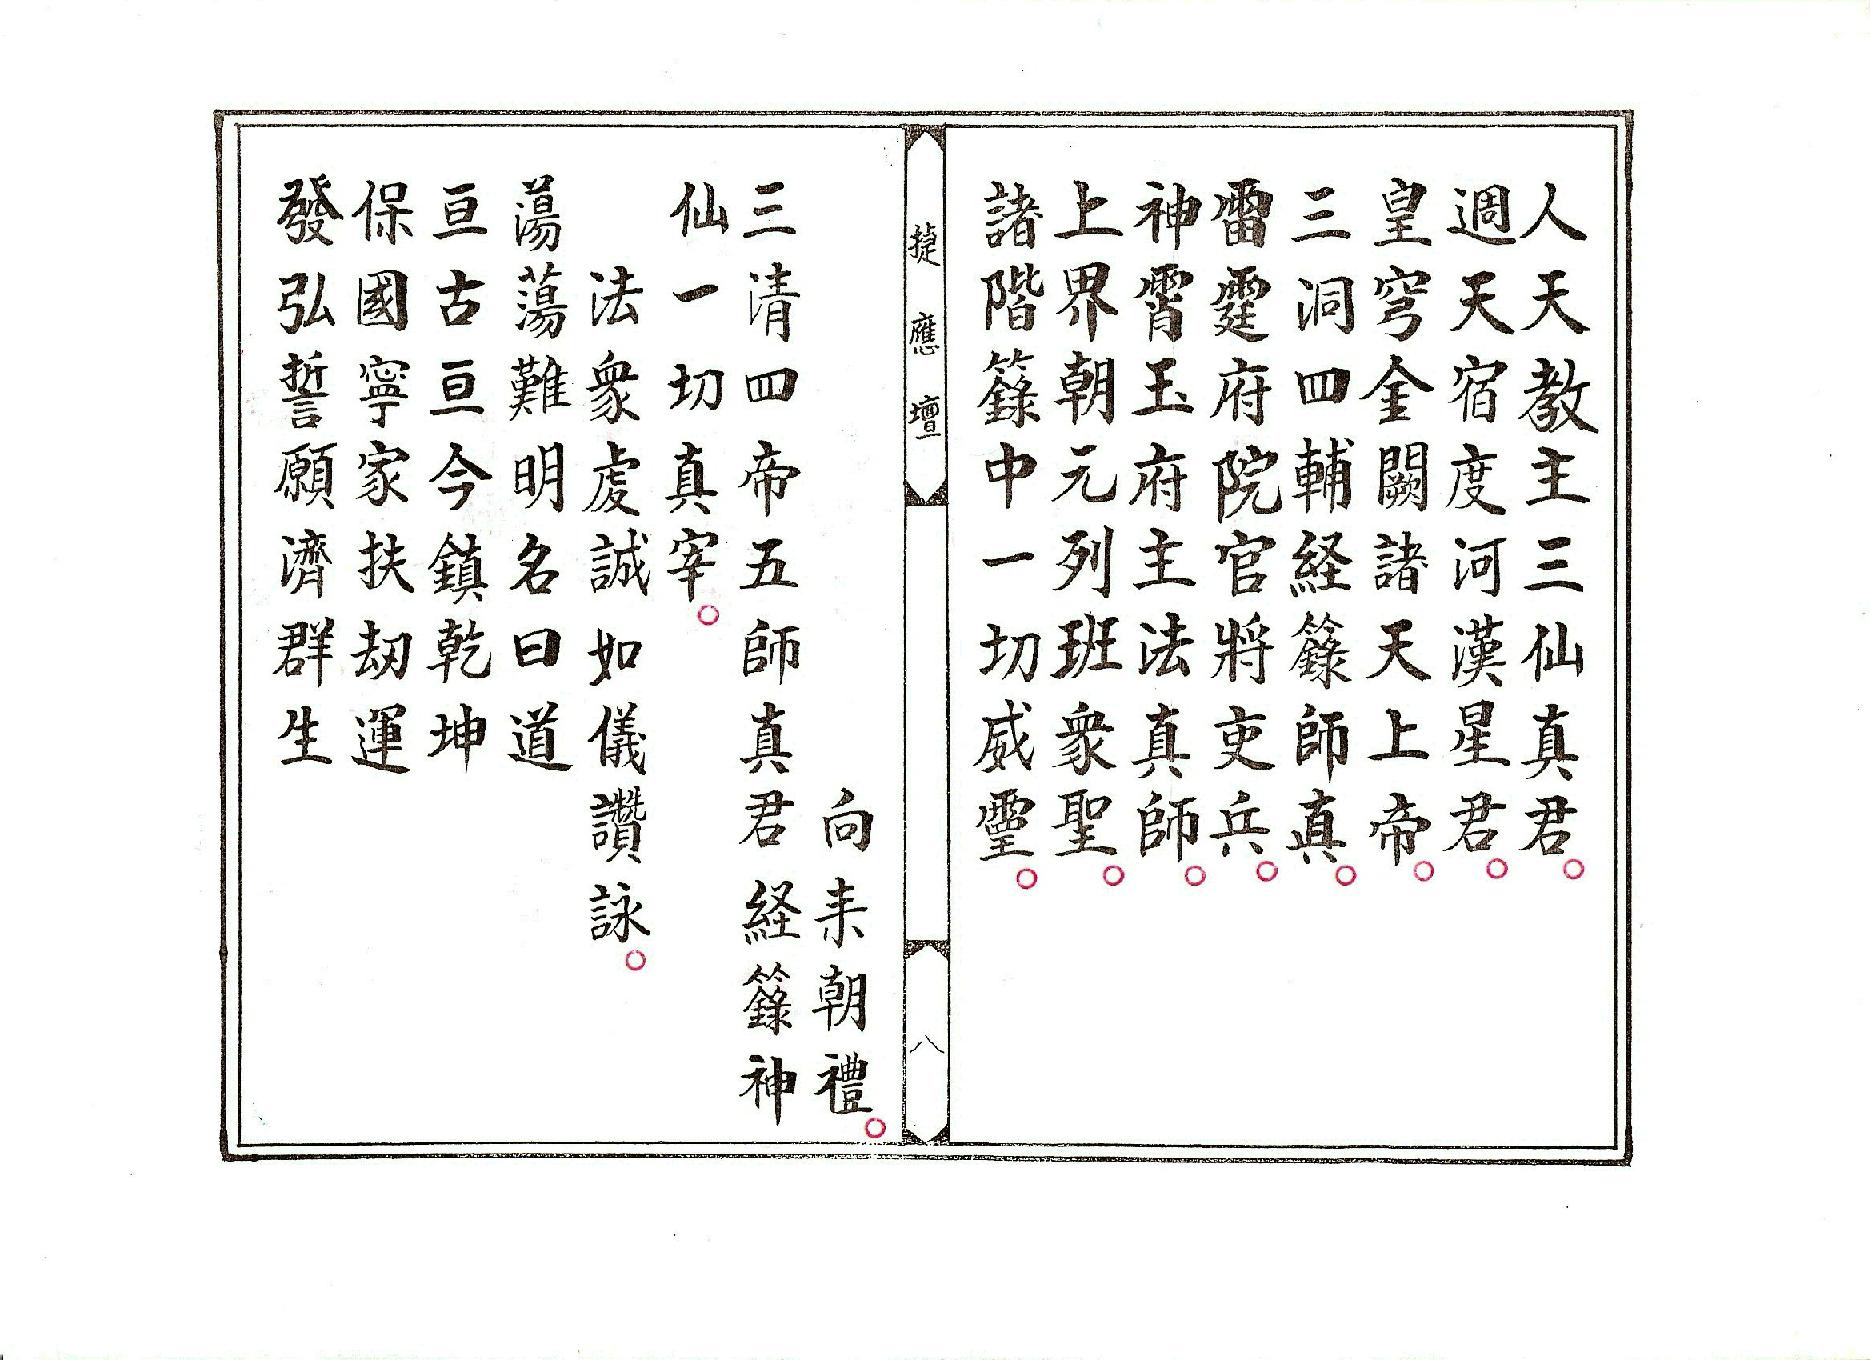 人天教主三仙真君○
週天宿度河漢星君○
皇穹金闕諸天上帝○
三洞四輔経籙師真○
雷霆府院官將吏兵○
神霄玉府主法真師○
上界朝元列班衆聖○
諸階籙中一切威霊○
捷應壇
八
向耒朝禮○
三清四帝五師真君経籙神
仙一切真宰○
法衆虔誠如儀讚詠○
蕩蕩難明名曰道
亘古亘今鎮乾坤
保國寧家扶刼運
發弘誓願濟群生